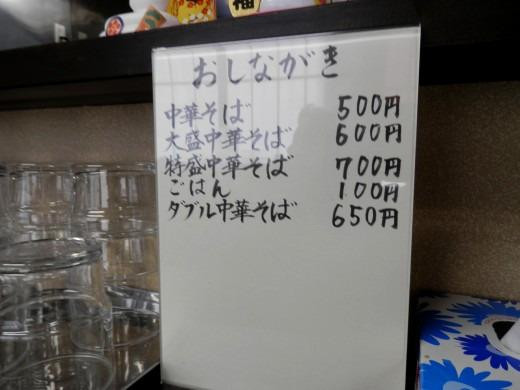 福
おしながき
中華そば 500円
大盛中華そば 600円
特盛中華そば 700円
ごはん 100円
ダブル中華そば 650円